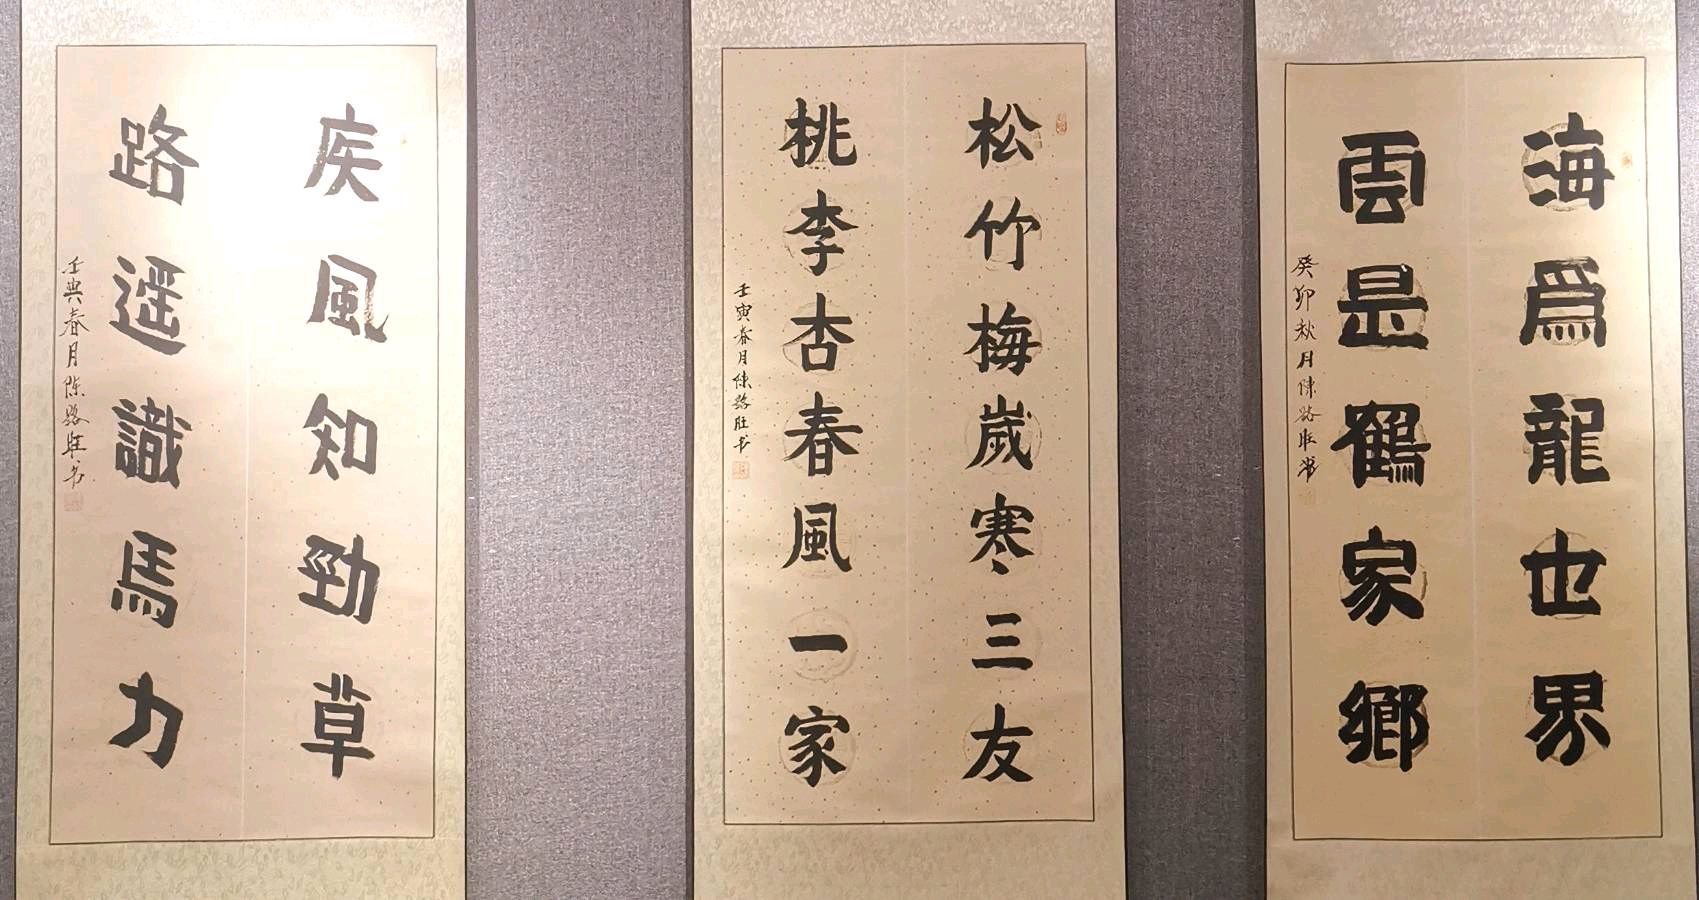 海爲龍世界
雲是鶴家鄉
癸卯秋月陳路旺书
松竹梅歲寒三友
桃李杏春風一家
壬寅春月陳路旺书
疾風知勁草
路遥識馬力
壬寅春月陈路旺书